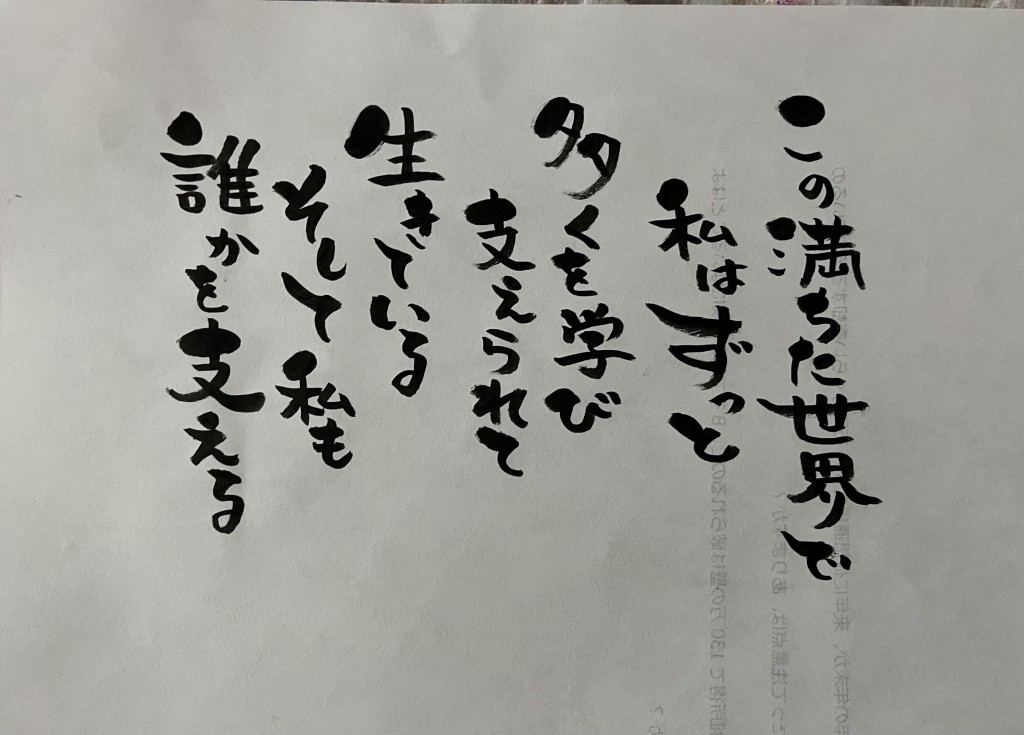 この満ちた世界で
私はずっと
多くを学び
支えられて
生きている
そして私も
誰かを支える